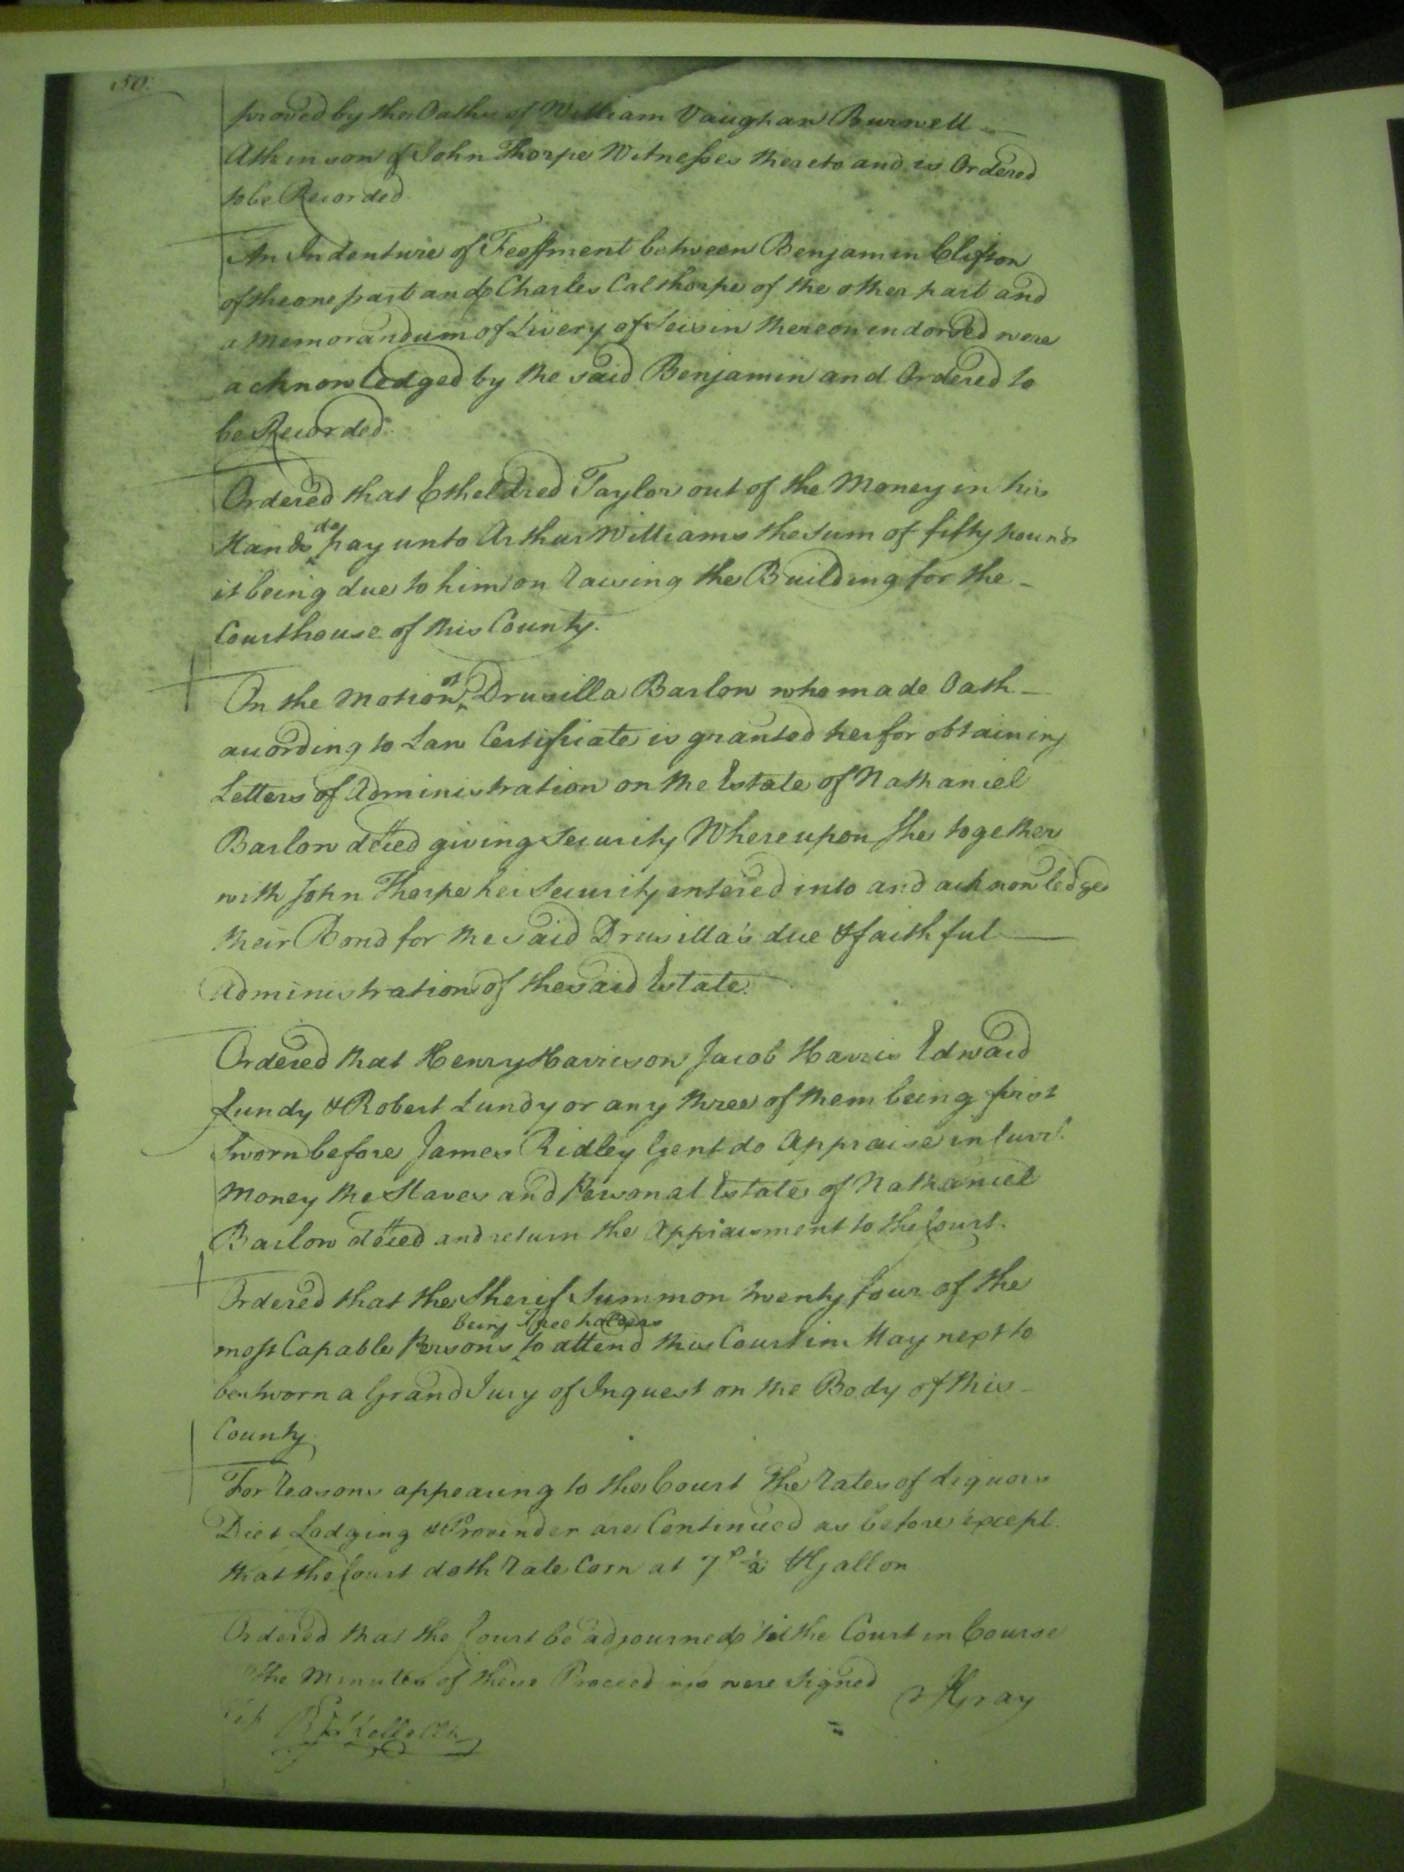 150.
proved by the Oaths of William Vaughan Burwell
Atkinson & John Thorpe Witnesses thereto and is Ordered
to be Recorded.
An Indenture of Feoffment between Benjamin Clifton
of the one part and Charles Calthorpe of the other part and
a Memorandum of Livery of Seisin thereon indorsed were
acknowledged by the said Benjamin and Ordered to
be Recorded.
Ordered that Etheldred Taylor out of the Money in his
Hands do pay unto Arthur Williams the Sum of fifty pounds
it being due to him on raising the Building for the
Courthouse of this County.
On the Motion of Drusilla Barlow who made Oath
according to Law Certificate is granted her for obtaining
Letters of Administration on the Estate of Nathaniel
Barlow deced giving Security Whereupon she together
with John Thorpe her Security entered into and acknowledged
their Bond for the said Drusilla's due & faithful
Administration of the said Estate.
Ordered that Henry Harrison Jacob Harris Edward
Lundy & Robert Lundy or any three of them being first
Sworn before James Ridley Gent do Appraise in Curr.t
Money the Slaves and Personal Estate of Nathaniel
Barlow deced and return the Appraisment to the Court.
Ordered that the Sherif Summon twenty four of the
most Capable Persons being Freeholders to attend this Court in May next to
be sworn a Grand Jury of Inquest on the Body of this
County.
For reasons appearing to the Court The rates of Liquors
Diet Lodging & Provinder are Continued as before except
that the Court doth rate Corn at 7d ½ Gallon
Ordered that the Court be adjourned till the Court in Course
The Minutes of these Proceedings were Signed
Gray